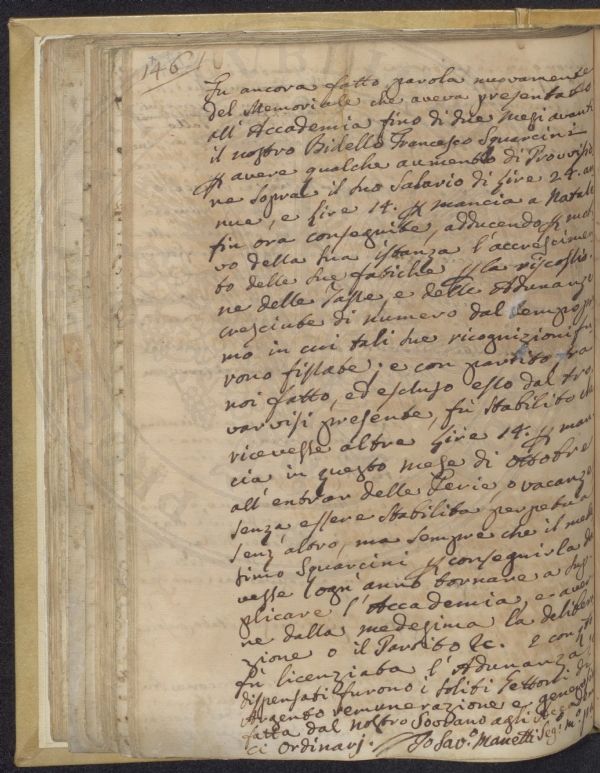 146
Fu ancora fatto parola nuovamente
del Memoriale che aveva presentato
all'Accademia fino di due mesi avanti
il nostro Bidello Francesco Squarcini
p avere qualche aumento di Provvisio
ne sopra il suo Salario di Lire 24. an
nue, e Lire 14. p mancia a Natale
fin ora conseguite, adducendo p moti
vo della sua istanza l'accrescimen
to delle sue fatiche p la riscossio
ne delle Tasse, e delle Adunanze
cresciute di numero dal tempo pri
mo in cui tali sue ricognizioni fu
rono fissate; e con partito fra
noi fatto, ed escluso esso dal tro
varvisi presente, fù stabilito che
ricevesse altre Lire 14. p man
cia in questo mese di Ottobre
all'entrar delle Ferie, o vacanze
senza essere stabilita perpetua
senz'altro, ma sempre che il mede
simo Squarcini p conseguirla do
vesse ogn'anno tornare a sup
plicare l'Accademia, e aver
ne dalla medesima la delibera
zione o il Partito &c. E con
fù licenziata l'Adunanza, e
dispensati furono i soliti Gettoni di
Argento remunerazione e generosità
fatta dal nostro Sovrano agli
ci Ordinarj. Io Sav.o Manetti Seg.